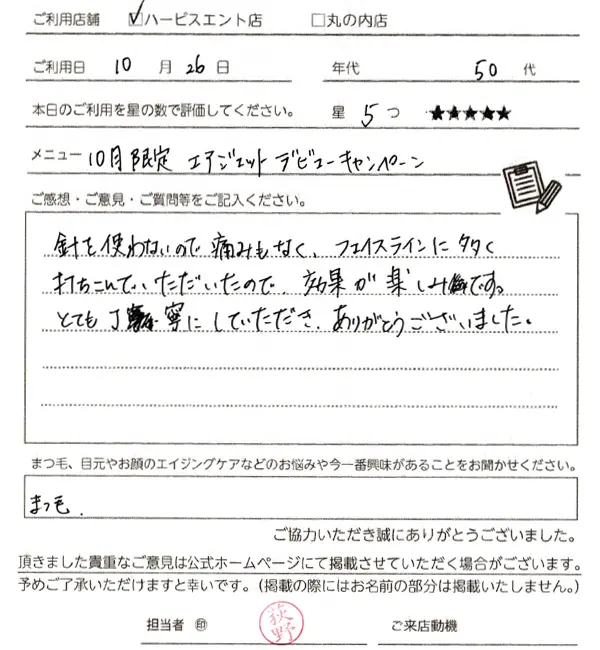 ご利用店舗 ☑ハービスエント店 □丸の内店
ご利用日 10 月 26 日 年代 50 代
本日のご利用を星の数で評価してください。 星 5 つ ★★★★★
メニュー 10月限定 エアジェットデビューキャンペーン
ご感想・ご意見・ご質問等をご記入ください。
針を使わないので痛みもなく、フェイスラインに多く
打ちこんでいただいたので、効果が楽しみです。
とても丁寧にしていただき、ありがとうございました。
まつ毛、目元やお顔のエイジングケアなどのお悩みや今一番興味があることをお聞かせください。
まつ毛.
ご協力いただき誠にありがとうございました。
頂きました貴重なご意見は公式ホームページにて掲載させていただく場合がございます。
予めご了承いただけますと幸いです。（掲載の際にはお名前の部分は掲載いたしません。）
担当者 ㊞ 荻野 ご来店動機